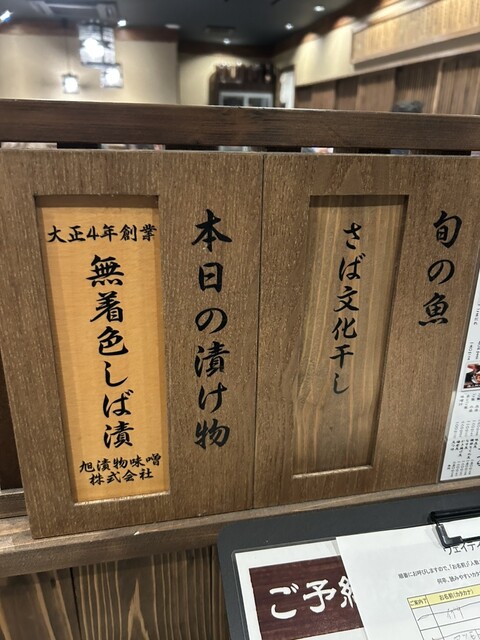 旬の魚
さば文化干し
本日の漬け物
大正4年創業
無着色しば漬
旭漬物味噌
株式会社
ご予約
ウェイティ
ご案内了
お名前(カタカナ)